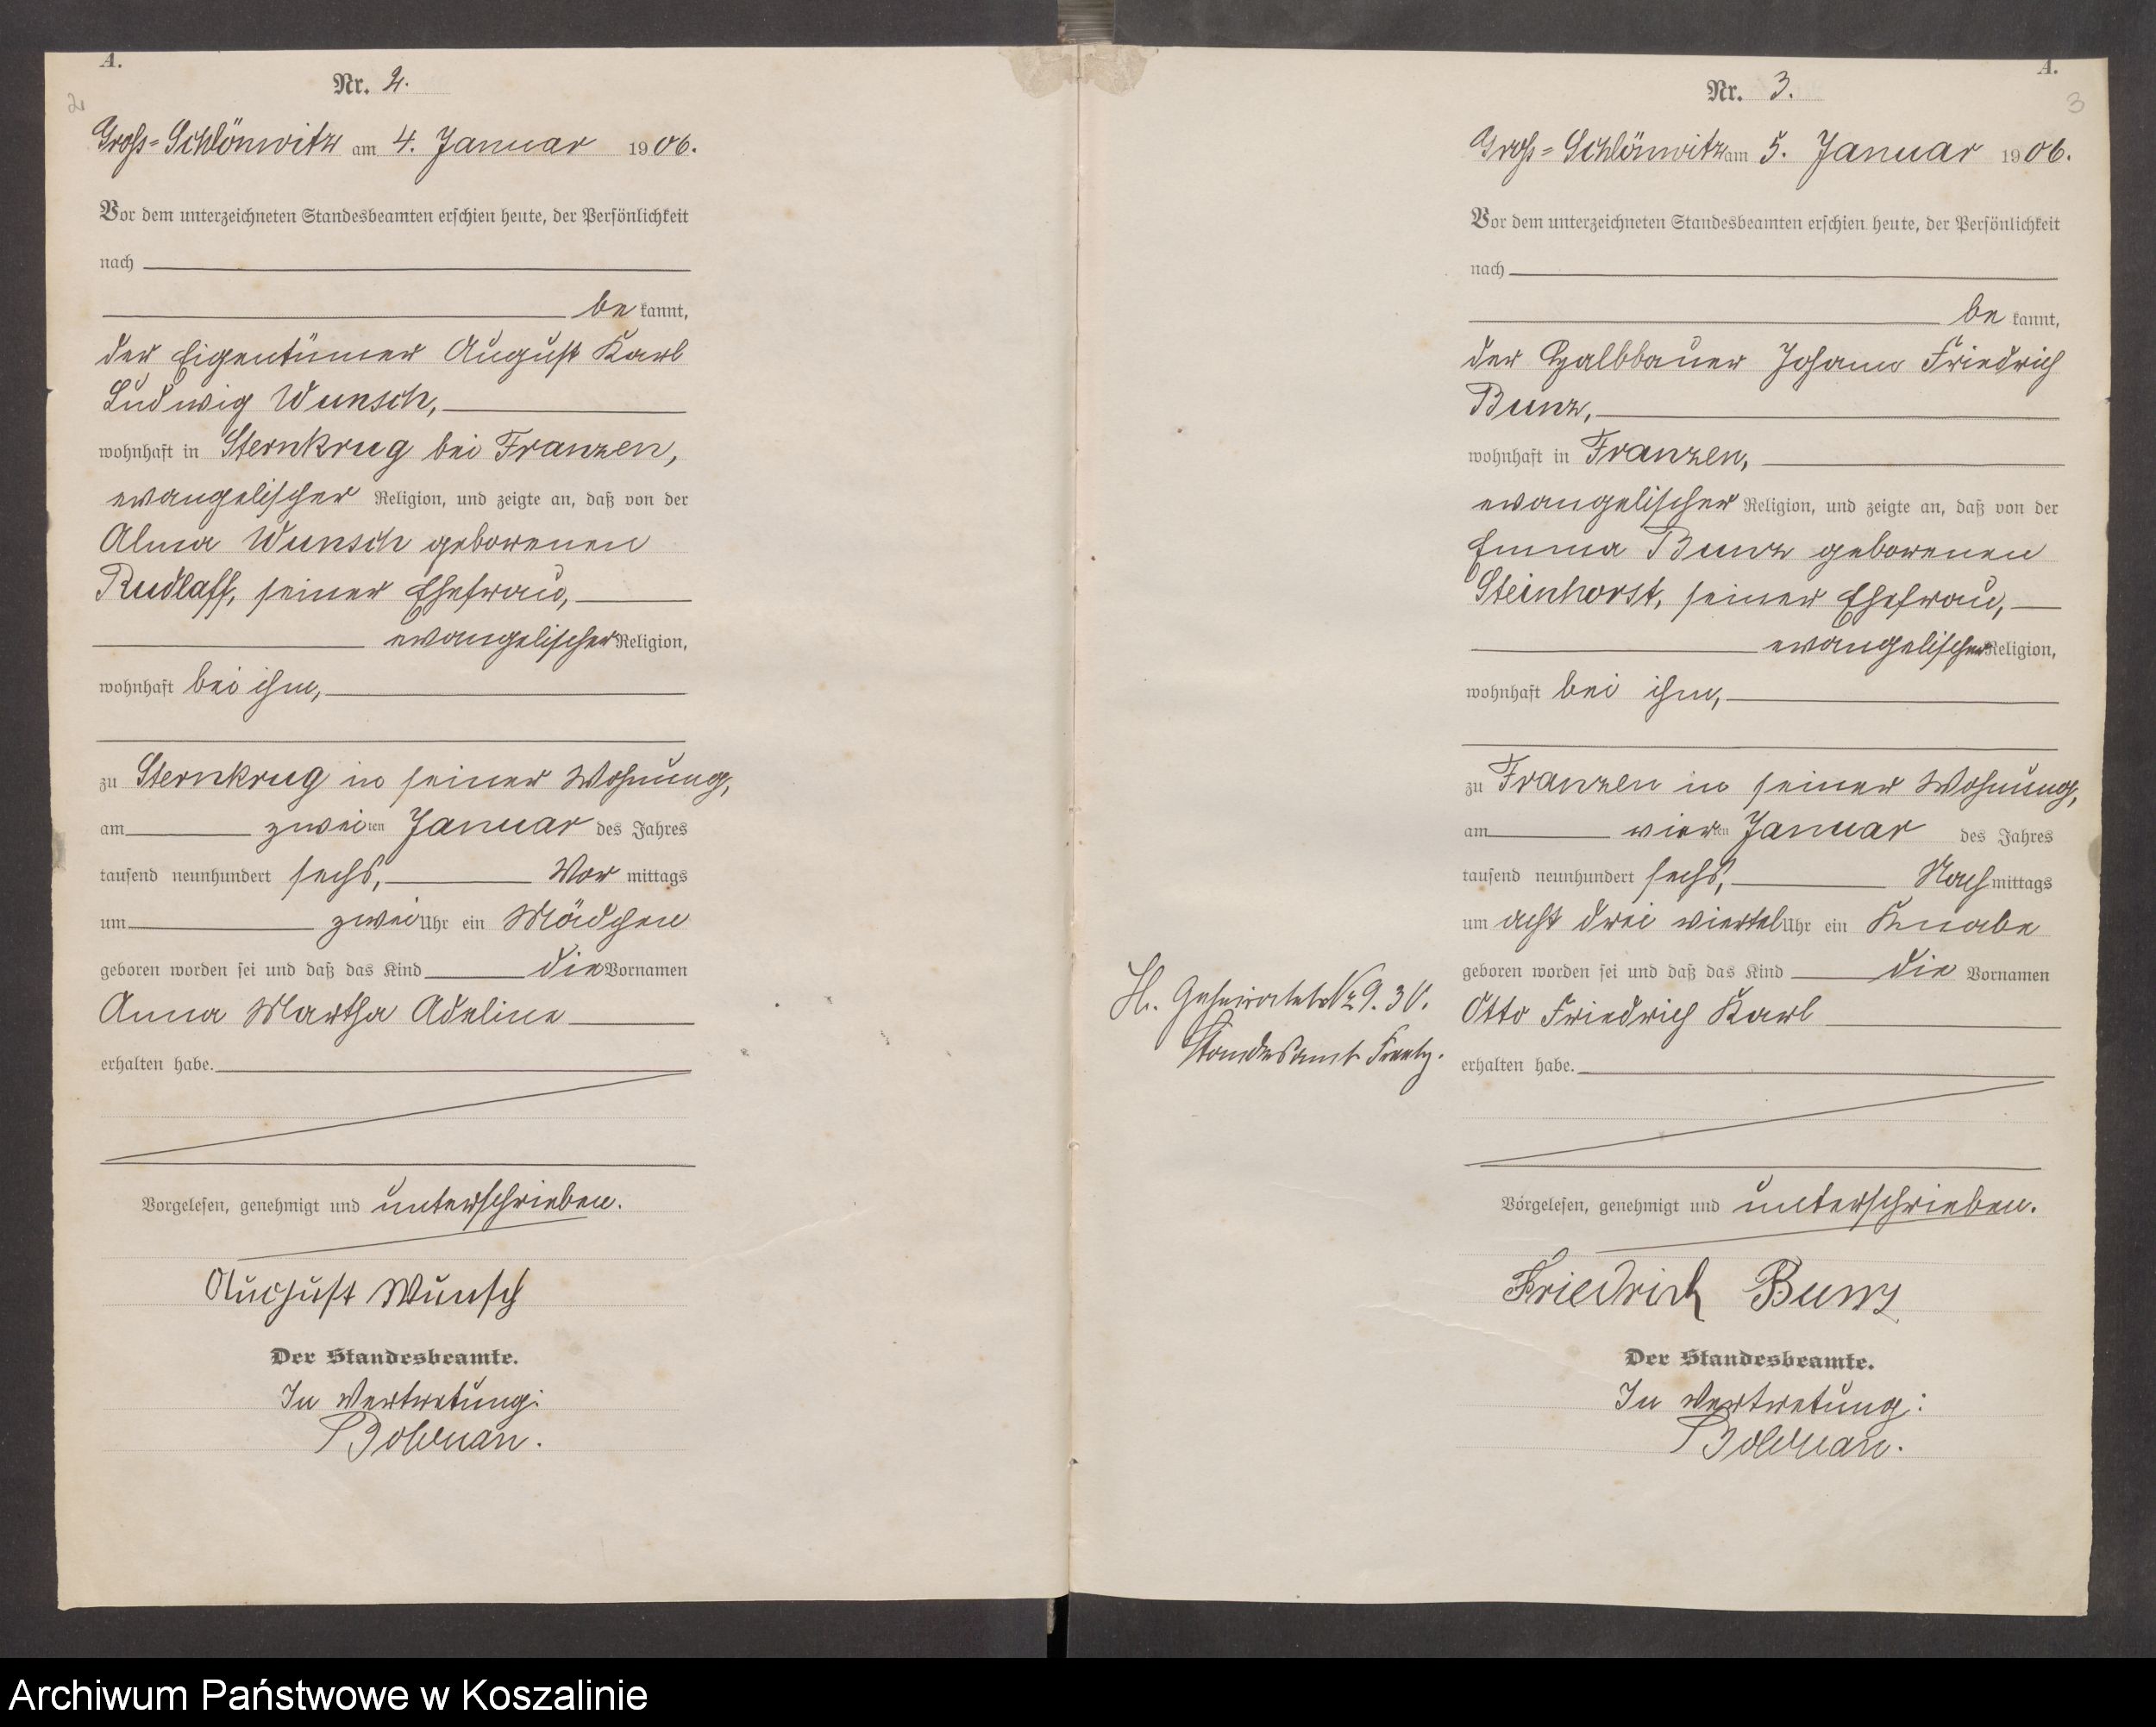 A.
2
Nr. 2.
Groß-Schlönwitz am 4. Januar 1906.
Vor dem unterzeichneten Standesbeamten erschien heute, der Persönlichkeit
nach
be kannt,
der Eigentümer August Karl
Ludwig Wunsch,
wohnhaft in Sternkrug bei Franzen,
evangelischer Religion, und zeigte an, daß von der
Alma Wunsch geborenen
Rudlaff, seiner Ehefrau,
evangelischer Religion,
wohnhaft bei ihm,
zu Sternkrug in seiner Wohnung,
am zweiten Januar des Jahres
tausend neunhundert sechs, Vor mittags
um zwei Uhr ein Mädchen
geboren worden sei und daß das Kind die Vornamen
Anna Martha Adeline
erhalten habe.
Vorgelesen, genehmigt und unterschrieben.
August Wunsch
Der Standesbeamte.
In Vertretung:
Bolduan.
A.
3
Nr. 3.
Groß-Schlönwitz am 5. Januar 1906.
Vor dem unterzeichneten Standesbeamten erschien heute, der Persönlichkeit
nach
be kannt,
der Halbbauer Johann Friedrich
Bunz,
wohnhaft in Franzen,
evangelischer Religion, und zeigte an, daß von der
Emma Bunz geborenen
Steinhorst, seiner Ehefrau,
evangelischer Religion,
wohnhaft bei ihm,
zu Franzen in seiner Wohnung,
am vierten Januar des Jahres
tausend neunhundert sechs, Nach mittags
um acht drei viertel Uhr ein Knabe
geboren worden sei und daß das Kind die Vornamen
Otto Friedrich Karl
erhalten habe.
Vorgelesen, genehmigt und unterschrieben.
Friedrich Bunz
Der Standesbeamte.
In Vertretung:
Bolduan.
Geheiratet
Standesamt
Archiwum Państwowe w Koszalinie